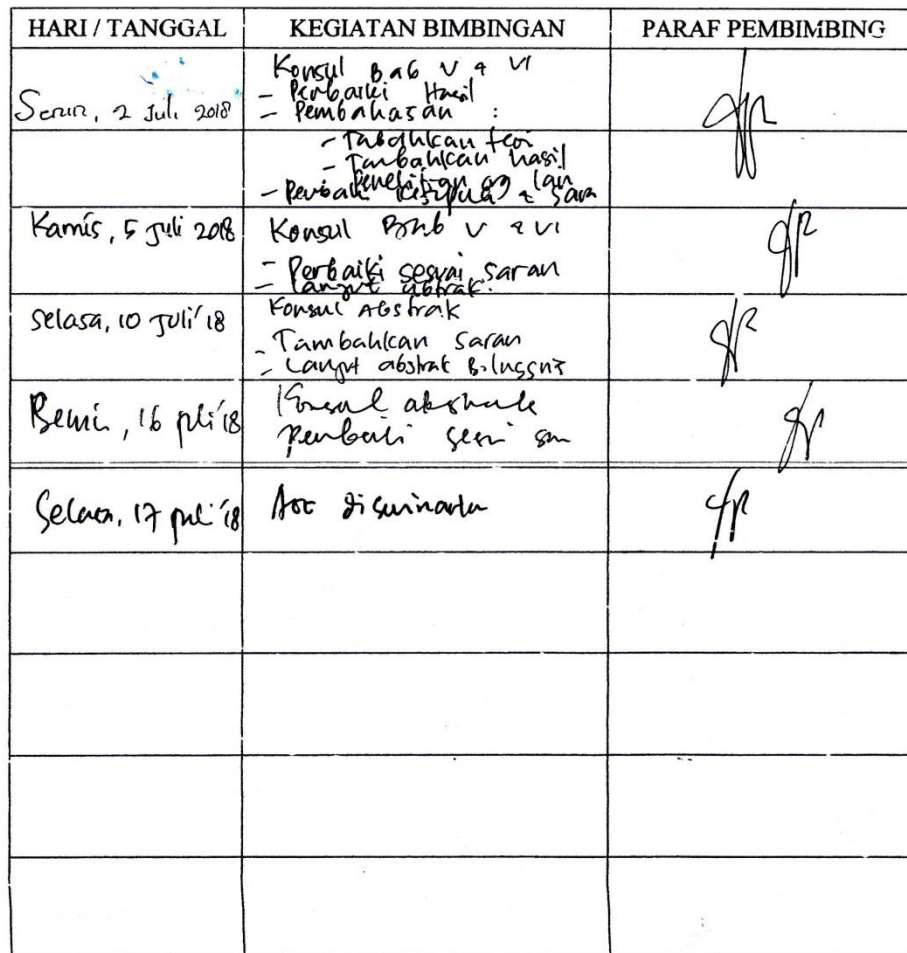 HARI / TANGGAL KEGIATAN BIMBINGAN PARAF PEMBIMBING
Konsul Bab V & VI
- Perbaiki Hasil
Senin, 2 Juli 2018 - Pembahasan :
- Tambahkan teori
- Tambahkan hasil
penelitian yg lain
- Perbaiki kesimpulan & saran
Kamis, 5 Juli 2018 Konsul Bab V & VI
- Perbaiki sesuai saran
- Lanjut abstrak.
Selasa, 10 Juli '18 Konsul Abstrak
- Tambahkan saran
- Lanjut abstrak B.Inggris
Senin, 16 Juli '18 Konsul abstrak
Perbaiki sesuai
Selasa, 17 Juli '18 Acc